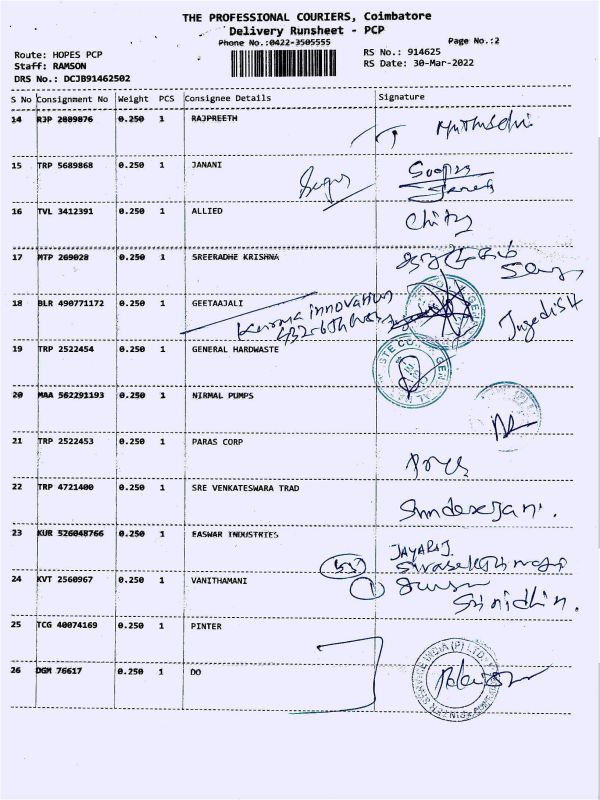 THE PROFESSIONAL COURIERS, Coimbatore
Delivery Runsheet - PCP
Phone No.:0422-3505555
Page No.:2
Route: HOPES PCP
RS No.: 914625
Staff: RAMSON
RS Date: 30-Mar-2022
DRS No.: DCJB91462502
S No Consignment No Weight PCS Consignee Details Signature
14 RJP 2889876 0.250 1 RAJPREETH
15 TRP 5689868 0.250 1 JANANI
16 TVL 3412391 0.250 1 ALLIED
17 MTP 269028 0.250 1 SREERADHE KRISHNA
18 BLR 490771172 0.250 1 GEETAAJALI
Karma innovation
JagediSH
19 TRP 2522454 0.250 1 GENERAL HARDWASTE
20 MAA 562291193 0.250 1 NIRMAL PUMPS
21 TRP 2522453 0.250 1 PARAS CORP
22 TRP 4721400 0.250 1 SRE VENKATESWARA TRAD
23 KUR 526048766 0.250 1 EASWAR INDUSTRIES
JAYARAJ.
24 KVT 2560967 0.250 1 VANITHAMANI
Srinidhin.
25 TCG 40074169 0.250 1 PINTER
26 DGM 76617 0.250 1 DO